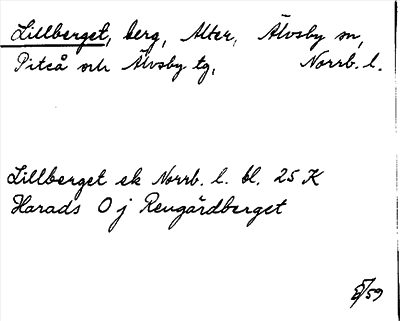 Lillberget, berg, Alter, Älvsby sn,
Piteå och Älvsby tg, Norrb. l.
Lillberget ek Norrb. l. bl. 25 K
Harads O j Rengårdberget
/59